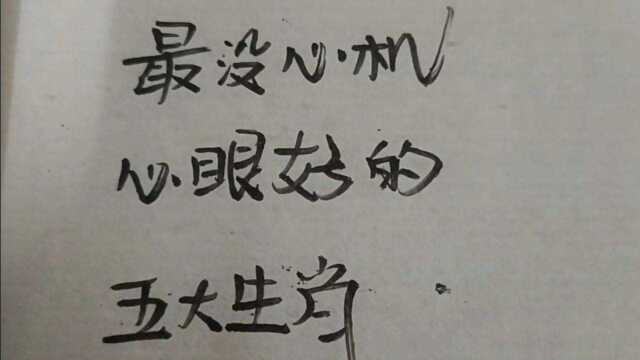 最没心机
心眼好的
五大生肖